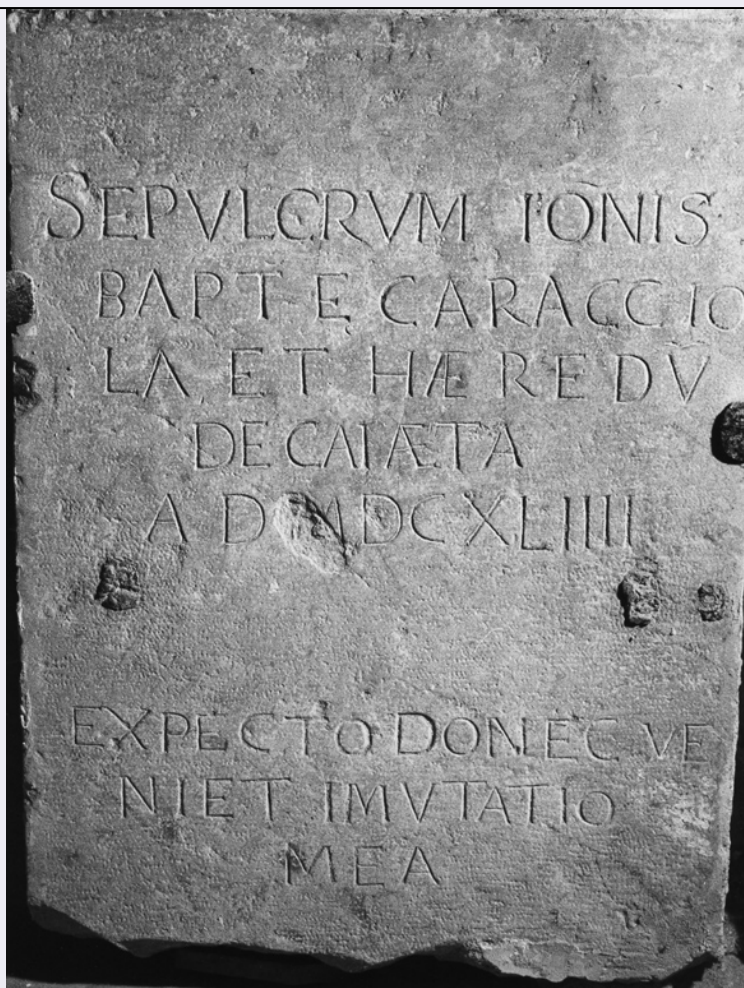 SEPVLCRVM IOÑIS
BAPTE CARACCIO
LA ET HÆREDV̄
DE CAIÆTA
A D MDCXLIIII
EXPECTO DONEC VE
NIET IMVTATIO
MEA